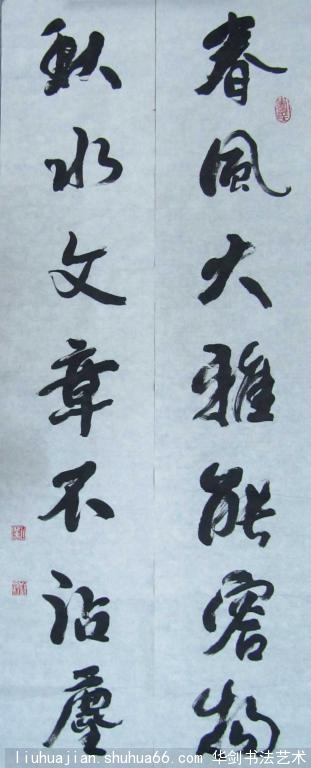 春風大雅能容物
秋水文章不沾塵
liuhuajian.shuhua66.com 华剑书法艺术